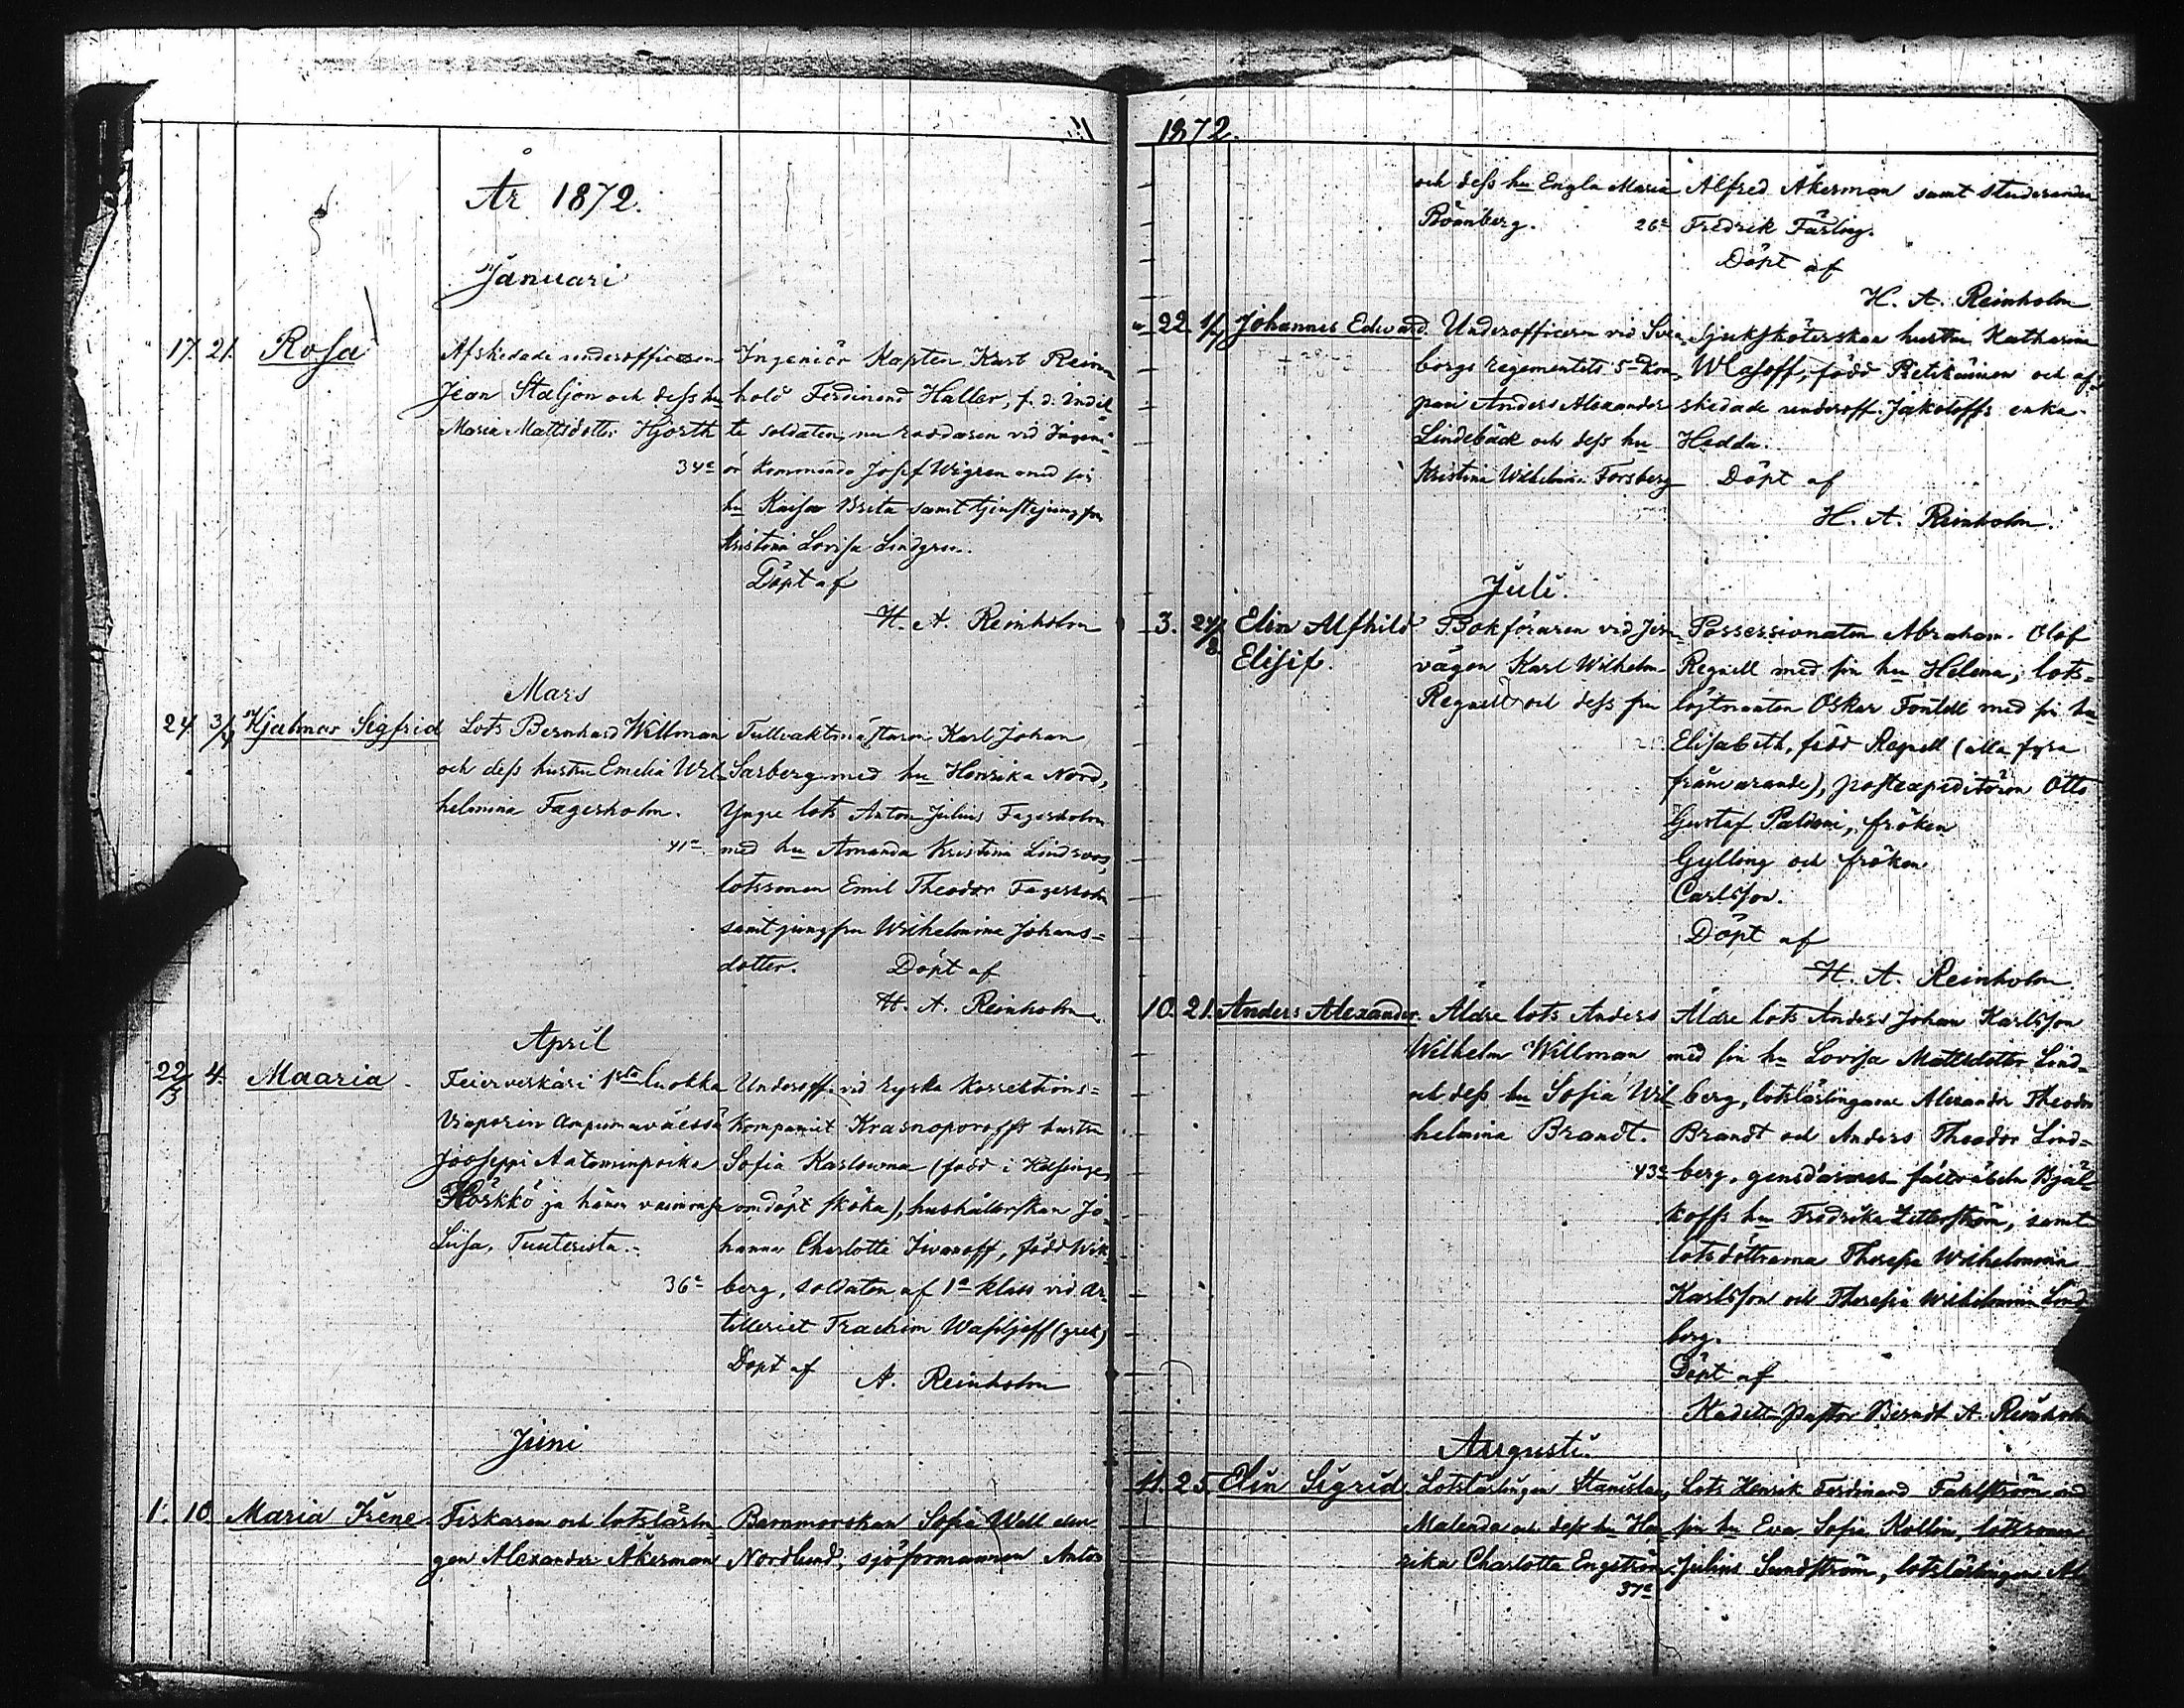 År 1872.
Januari
17. 21. Rosa
Afskedade underofficeren
Jean Staljon och dess hu
Maria Mattsdotter Hjorth
34 a
Ingeniör Kapten Karl Rein
hold Ferdinand Haller, f. d. indel
ta soldaten, nu roddaren vid Ingeni
ör kommando Josef Wigren med sin
hu Kaisa Brita samt tjenstejungfru
Kristina Lovisa Lindgren.
Döpt af
H. A. Reinholm
Mars
24. 3/4 Hjalmar Sigfrid
Lots Bernhard Willman
och dess hustru Emelia Wil
helmina Fagerholm.
41 a
Tullvaktmästaren Karl Johan
Sarberg med hu Henrika Nord,
Yngre lots Anton Julius Fagerholm
med hu Amanda Kristina Lindroos,
lotssonen Emil Theodor Fagerholm
samt jungfru Wilhelmina Johans=
dotter. Döpt af
H. A. Reinholm
April
22/3 4. Maaria
Feierverkäri 1sta luokka
Viaporin
Jooseppi Aatominpoika
Hörkkö ja hänen vaimonsa
Liisa,
36 a
Underoff. vid ryska korrektions=
kompaniet Krasnoporoffs hustru
Sofia Karlowna (född i Helsinge,
omdöpt ), hushållerskan Jo
hanna Charlotte Iwanoff, född Wik
berg, soldaten af 1a klass vid Ar
tilleriet Trachim Wasiljeff (grek)
Döpt af
A. Reinholm
Juni
1. 10. Maria Irene
Fiskaren och lotslärlin
gen Alexander Åkerman
Barnmorskan Sofia Well
Nordlund, sjöformannen Anton
1872.
och dess hu Engla Maria
Rönnberg. 26 a
Alfred Åkerman samt studeranden
Fredrik Färling.
Döpt af
H. A. Reinholm
22. 1/7 Johannes Edward.
Underofficeren vid Svea
borgs regementets 5te kom
pani Anders Alexander
Lindebäck och dess hu
Kristina Wilhelmina Forsberg
Sjuksköterskan hustru Katharina
Wlasoff, född Pietikäinen och af
skedade underoff. Jakoloffs enka
Hedda.
Döpt af
H. A. Reinholm.
Juli.
3. 24/8 Elin Alfhild
Elisif.
Bokföraren vid Jern
vägen Karl Wilhelm
Regnell och dess fru
Possessionaten Abraham Olof
Regnell med sin hu Helena, lots=
löjtnanten Oskar Fontell med sin hu
Elisabeth, född Regnell (alla fyra
frånvarande), postexpeditören Otto
Gustaf Paldani, fröken
Gylling och fröken
Carlsson.
Döpt af
H. A. Reinholm
10. 21. Anders Alexander.
Äldre lots Anders
Wilhelm Willman
och dess hu Sofia Wil
helmina Brandt.
43 a
Äldre lots Anders Johan Karlsson
med sin hu Lovisa Mattsdotter Lind=
berg, lotslärlingarne Alexander Theodor
Brandt och Anders Theodor Lind=
berg, gensdarmes Bjäl
koffs hu Fredrika Zitterström, samt
lotsdöttrarna Theresia Wilhelmina
Karlsson och Theresia Wilhelmina Lind
berg.
Döpt af
Kadett-Pastor Berndt A. Reinholm
Augusti.
11. 25. Elin Sigrid.
Lotslärlingen Stanislaus
Malenda och dess hu Hen
rika Charlotta Engström
37 a
Lots Henrik Ferdinand Fahlström med
sin hu Eva Sofia Kollin, lotssonen
Julius Sundström, lotslärlingen Al